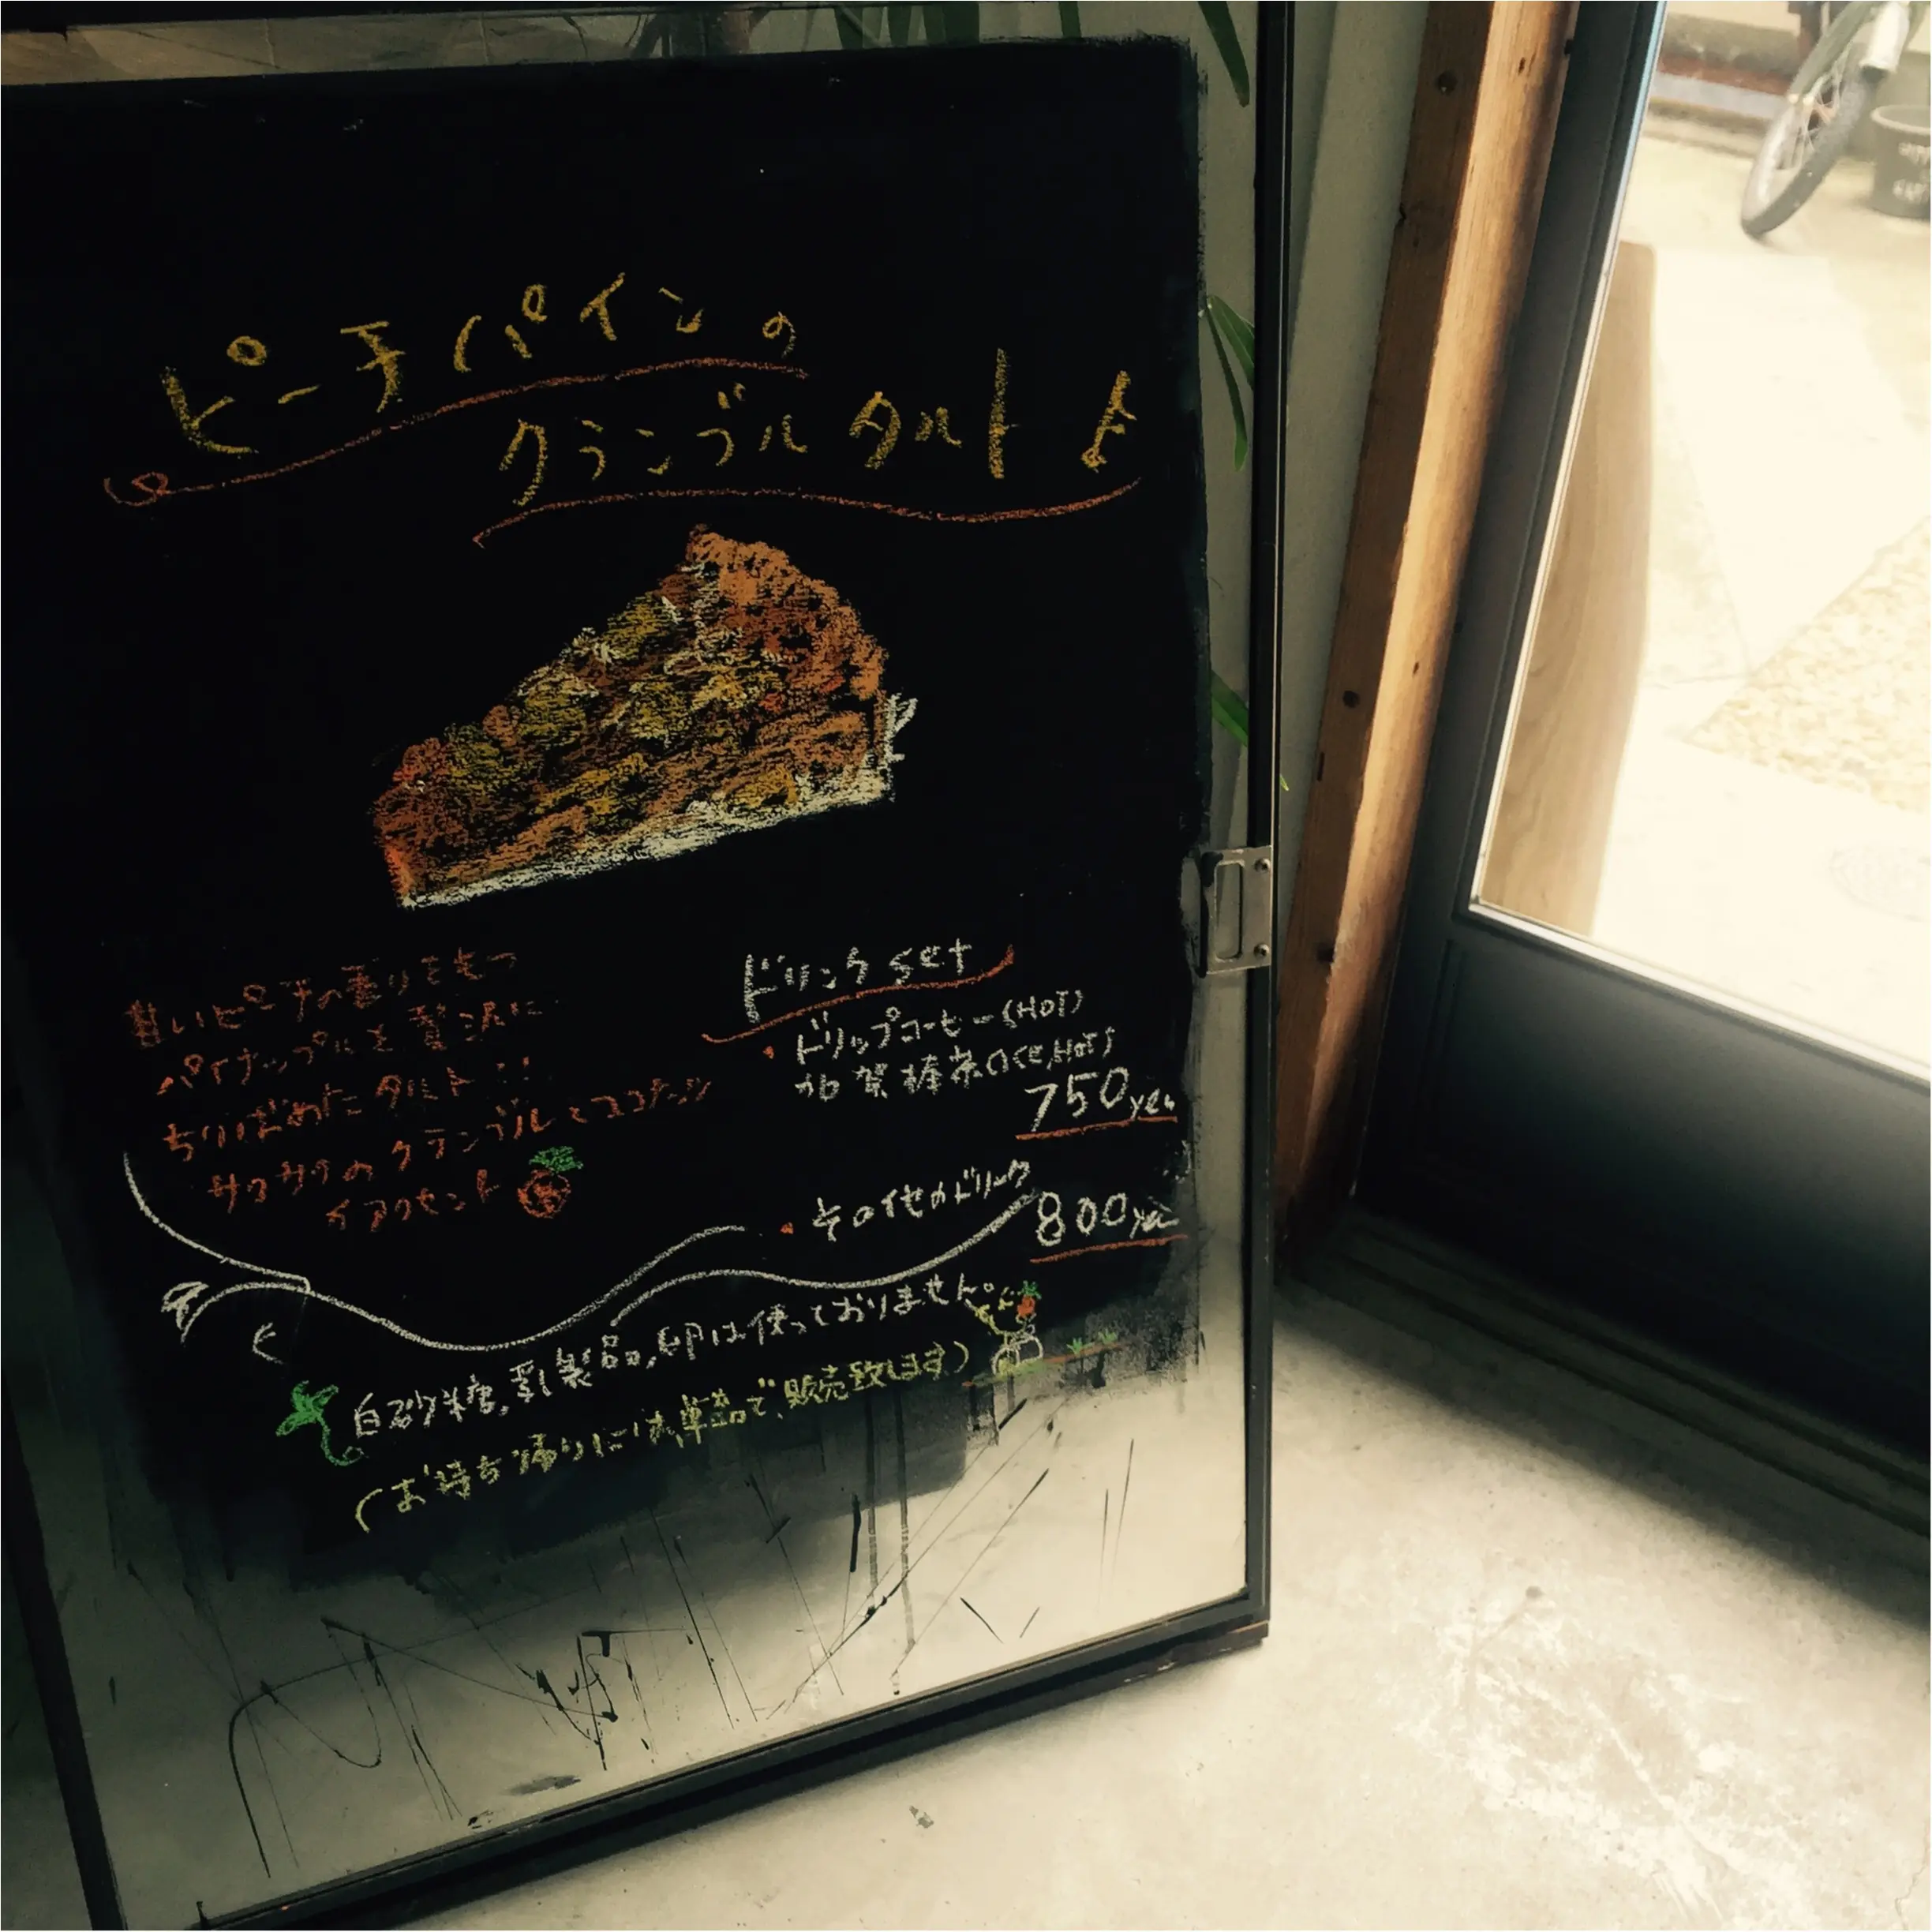 ピーチパインの
クランブルタルト
甘いピーチの香りをもつ
パイナップルを贅沢に
ちりばめたタルト
サクサクのクランブルとココナッツ
がアクセント
ドリンク set
・ドリップコーヒー(HOT)
加賀棒茶(ICE,HOT)
750yen
・その他のドリンク
800yen
白砂糖,乳製品,卵は使っておりません。
(お持ち帰りには、単品で、販売致します)